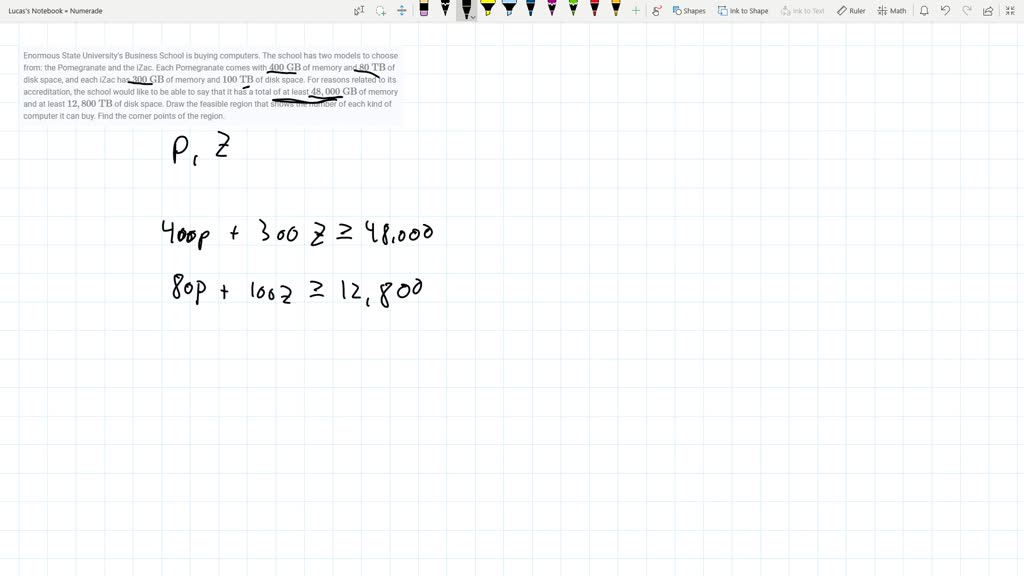 Lucas's Notebook » Numerade
Shapes Ink to Shape Ink to Text Ruler Math
Enormous State University's Business School is buying computers. The school has two models to choose
from: the Pomegranate and the iZac. Each Pomegranate comes with 400 GB of memory and 80 TB of
disk space, and each iZac has 300 GB of memory and 100 TB of disk space. For reasons related to its
accreditation, the school would like to be able to say that it has a total of at least 48,000 GB of memory
and at least 12,800 TB of disk space. Draw the feasible region that shows the number of each kind of
computer it can buy. Find the corner points of the region.
P, Z
400p + 300 Z ≥ 48,000
80p + 100z ≥ 12,800